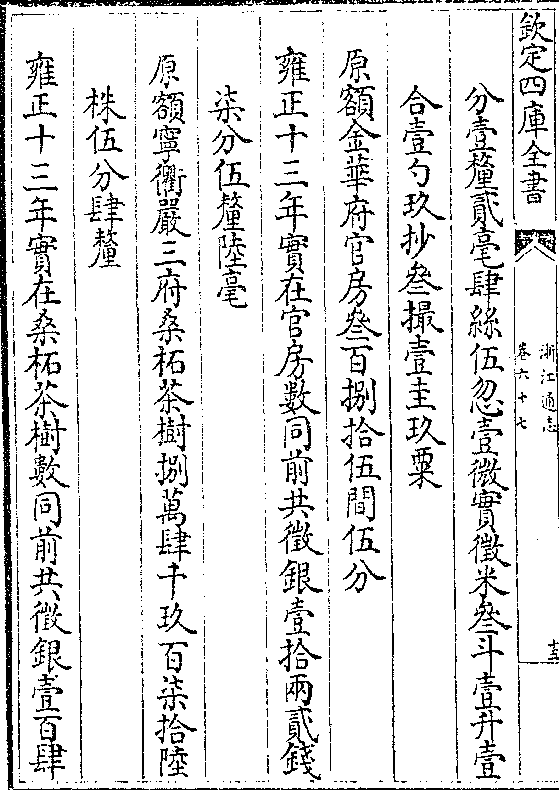 欽定四庫全書
浙江通志
卷六十七
分壹釐貳毫肆絲伍忽壹微實徵米叁斗壹升壹
合壹勺玖抄叁撮壹圭玖粟
原額金華府官房叁百捌拾伍間伍分
雍正十三年實在官房數同前共徵銀壹拾兩貳錢
柒分伍釐陸毫
原額寧衢嚴三府桑柘茶樹捌萬肆千玖百柒拾陸
株伍分肆釐
雍正十三年實在桑柘茶樹數同前共徵銀壹百肆